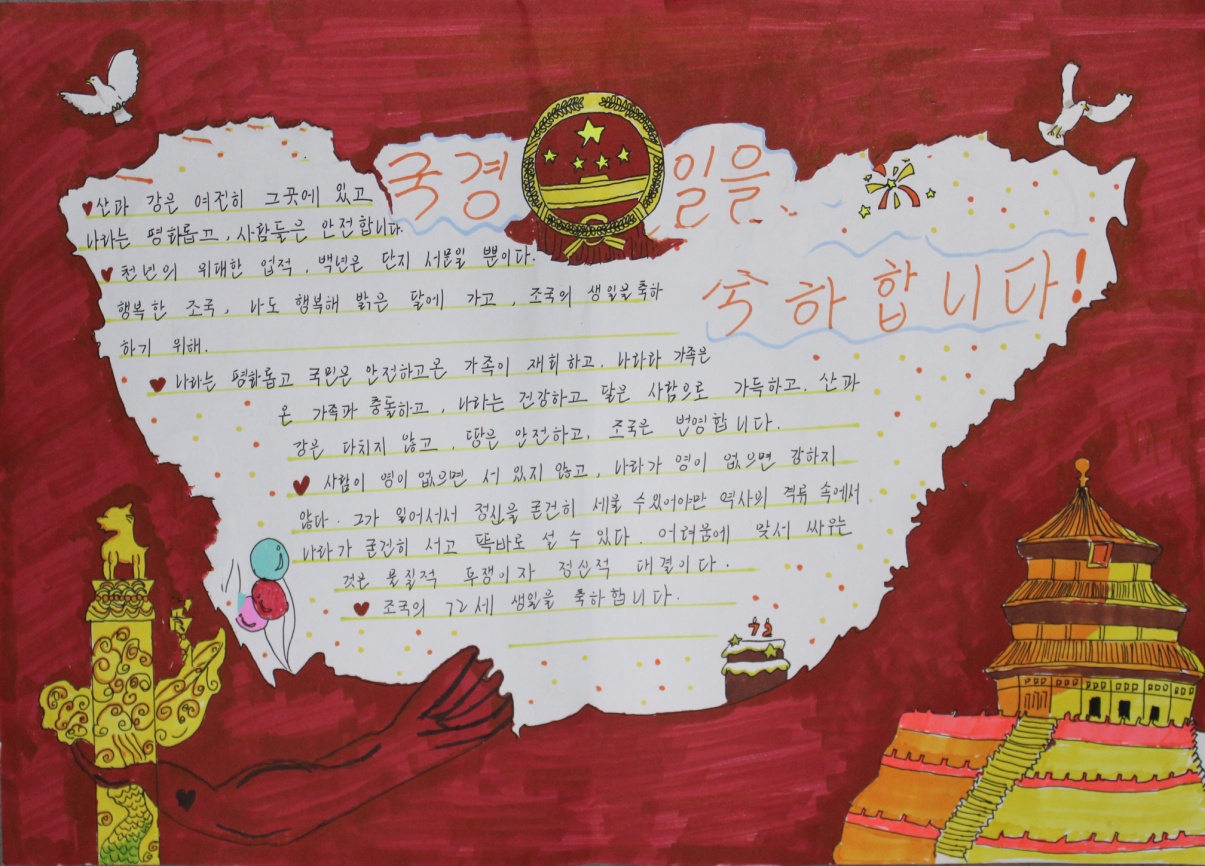 국경일을
축하합니다!
산과 강은 여전히 그곳에 있고
나라는 평화롭고, 사람들은 안전합니다.
천년의 위대한 업적, 백년은 단지 서문일 뿐이다.
행복한 조국, 나도 행복해 밝은 달에 가고, 조국의 생일을 축하
하기 위해.
나라는 평화롭고 국민은 안전하고온 가족이 재회하고, 나라라 가족은
온 가족과 충돌하고, 나라는 건강하고 닮은 사람으로 가득하고, 산과
강은 다치지 않고, 땅은 안전하고, 조국은 번영합니다.
사람이 영이 없으면 서 있지 않고, 나라가 영이 없으면 강하지
않다. 그가 일어서서 정신을 굳건히 세울 수있어야만 역사의 격류 속에서
나라가 굳건히 서고 똑바로 설 수 있다. 어려움에 맞서 싸우는
것은 물질적 투쟁이자 정신적 대결이다.
조국의 72세 생일을 축하합니다.
72